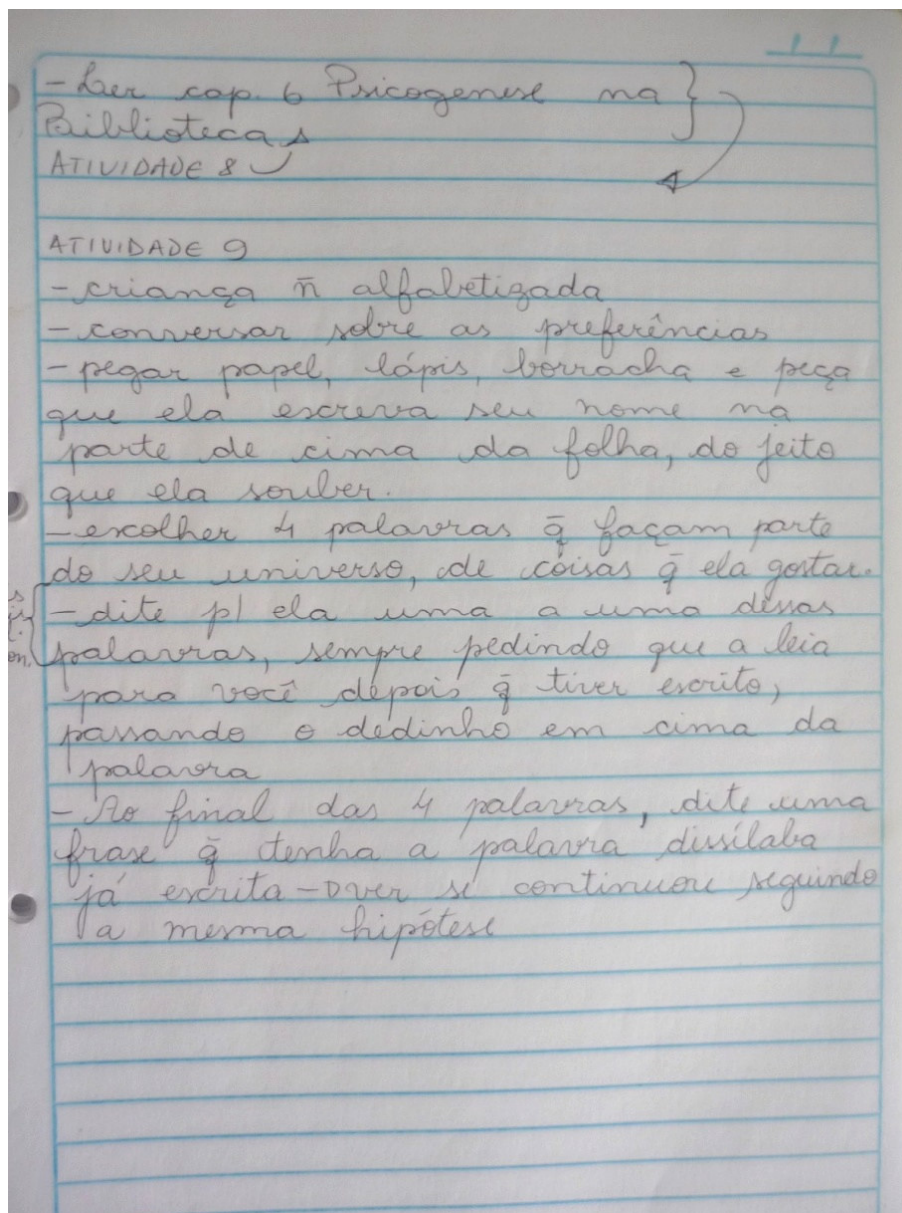 - Ler cap. 6 Psicogenese na
Biblioteca
ATIVIDADE 8
ATIVIDADE 9
- criança ñ alfabetizada
- conversar sobre as preferências
- pegar papel, lápis, borracha e peça
que ela escreva seu nome na
parte de cima da folha, do jeito
que ela souber.
- escolher 4 palavras q̄ façam parte
do seu universo, de coisas q̄ ela gostar.
- dite p/ ela uma a uma dessas
palavras, sempre pedindo que a leia
para você depois q̄ tiver escrito,
passando o dedinho em cima da
palavra
- Ao final das 4 palavras, dite uma
frase q̄ tenha a palavra dissílaba
já escrita → ver se continuou seguindo
a mesma hipótese